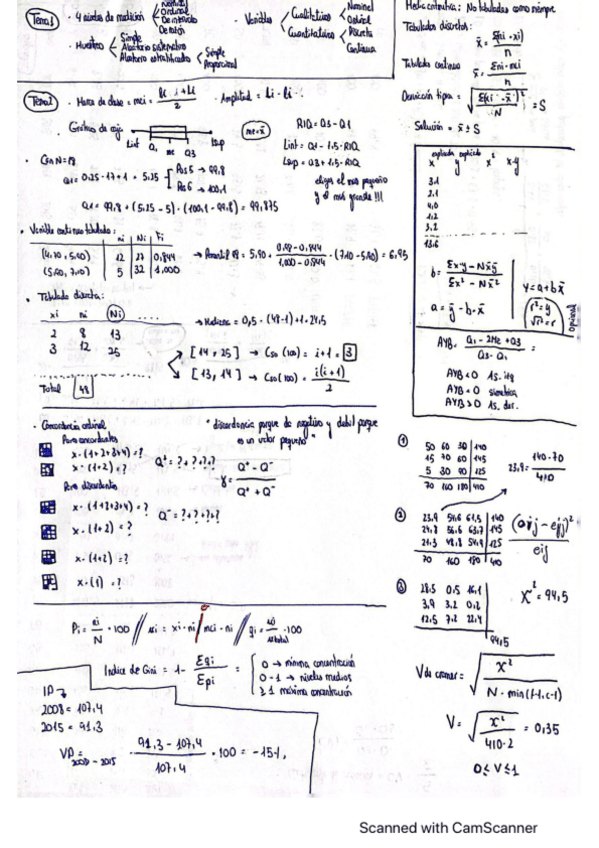 Tema 1
· 4 niveles de medición
Nominal
Ordinal
De intervalo
De razón
· Variables
Cualitativa
Nominal
Ordinal
Cuantitativa
Discreta
Continua
· Muestreo
Simple
Aleatorio sistemático
Aleatorio estratificado
Simple
Proporcional
Media aritmética: No tabulados como siempre
Tabulados discretos:
x̄ = Σ(ni · xi) / n
Tabulado continuo
x̄ = Σni · mci / n
Desviación típica =
= S
Solución = x̄ ± S
Tema 2
· Marca de clase = mci = (Li-1 + Li) / 2
· Amplitud = Li - li-1
· Gráfico de caja
Linf Q1 me Q3 Lsup
me · x̄
RIQ = Q3 - Q1
Linf = Q1 - 1,5 · RIQ
Lsup = Q3 + 1,5 · RIQ
eliges el más pequeño
y el más grande !!!
· Con N = 18
Q1 = 0,25 · 17 + 1 = 5,25
Pos 5 → 99,8
Pos 6 → 100,1
Q1 = 99,8 + (5,25 - 5) · (100,1 - 99,8) = 99,875
· Variable continua tabulada:
ni Ni Fi
(4,10, 5,90) 12 27 0,844
(5,90, 7,10) 5 32 1,000
(7,10 - 5,90) = 6,95
· Tabulada discreta:
xi ni Ni ....
2 8 13
3 12 25
Total 48
→ Mediana = 0,5 · (48-1) + 1 = 24,5
[14, 25] → Caso (100) = i + 1 = 3
[13, 14] → Caso (100) = i(i+1) / 2
explicada explicada
x y x² x·y
3,1
2,1
4,0
1,2
3,2
13,6
b = Σx·y - Nx̄ȳ / Σx² - Nx̄²
a = ȳ - b · x̄
y = a + bx̄
r² = y
√r² = r
opcional
AYB = Q1 - 2Me + Q3 / Q3 - Q1 =
AYB < 0 As. izq
AYB = 0 simétrica
AYB > 0 As. der.
· Concordancia ordinal
"discordancia porque da negativo y débil porque
es un valor pequeño"
Para concordantes
x · (1+2+3+4) = ?
x · (1+2) = ?
Q⁺ = ? + ? + ? + ?
γ = Q⁺ - Q⁻ / Q⁺ + Q⁻
Para discordantes
x · (1+2+3+4) = ?
Q⁻ = ? + ? + ? + ?
x · (1+2) = ?
x · (1+2) = ?
x · (1) = ?
① 50 60 30 140
15 70 60 145
5 30 90 125
70 160 180 410
23,9 = 140 · 70 / 410
② 23,9 54,6 61,5 140
24,8 56,6 63,7 145
21,3 48,8 54,9 125
70 160 180 410
(oij - eij)² / eij
③ 28,5 0,5 16,1
3,9 3,2 0,2
12,5 7,2 22,4
94,5
X² = 94,5
Índice de Gini = 1 - Σqi / Σpi =
0 → mínima concentración
0 - 1 → niveles medios
≥ 1 máxima concentración
V de cramer = √ X² / N · min(f-1, c-1)
V = √ X² / 410 · 2 = 0,35
0 ≤ V ≤ 1
2008 = 107,4
2015 = 91,3
2008 - 2015
91,3 - 107,4 / 107,4 · 100 = -15%
Scanned with CamScanner